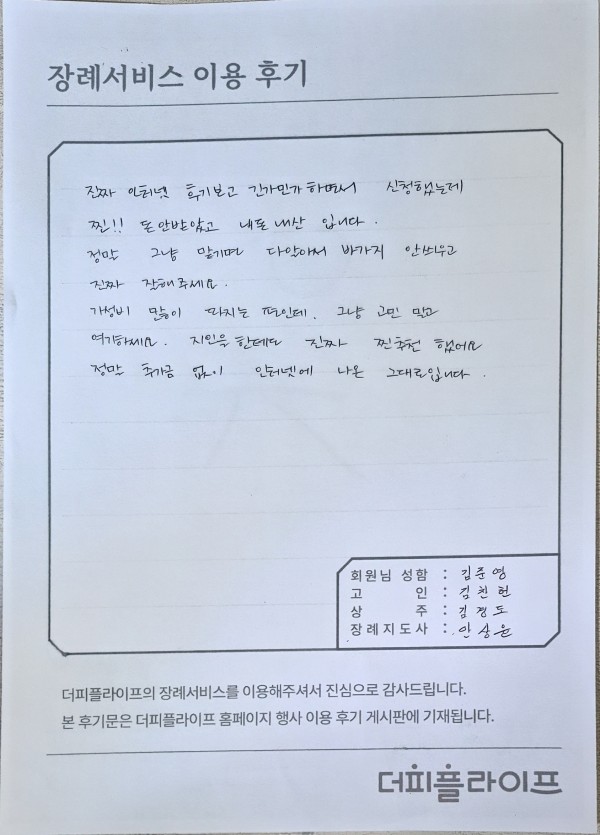 장례서비스 이용 후기
진짜 인터넷 후기보고 긴가민가 하면서 신청했는데
찐!! 돈안받았고 내돈내산 입니다.
정말 그냥 맡기면 다알아서 바가지 안씌우고
진짜 잘해주세요.
가성비 많이 따지는 편인데. 그냥 고민 말고
여기하세요. 지인들한테도 진짜 찐추천 했어요
정말 추가금 없이 인터넷에 나온 그대로입니다.
회원님 성함 : 김준영
고 인 : 김친헌
상 주 : 김정도
장례지도사 : 안상윤
더피플라이프의 장례서비스를 이용해주셔서 진심으로 감사드립니다.
본 후기문은 더피플라이프 홈페이지 행사 이용 후기 게시판에 기재됩니다.
더피플라이프